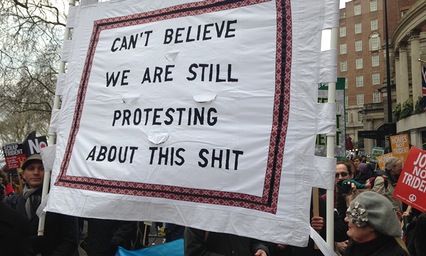 CAN'T BELIEVE
WE ARE STILL
PROTESTING
ABOUT THIS SHIT
NO
JO
NOT
TRIDEN